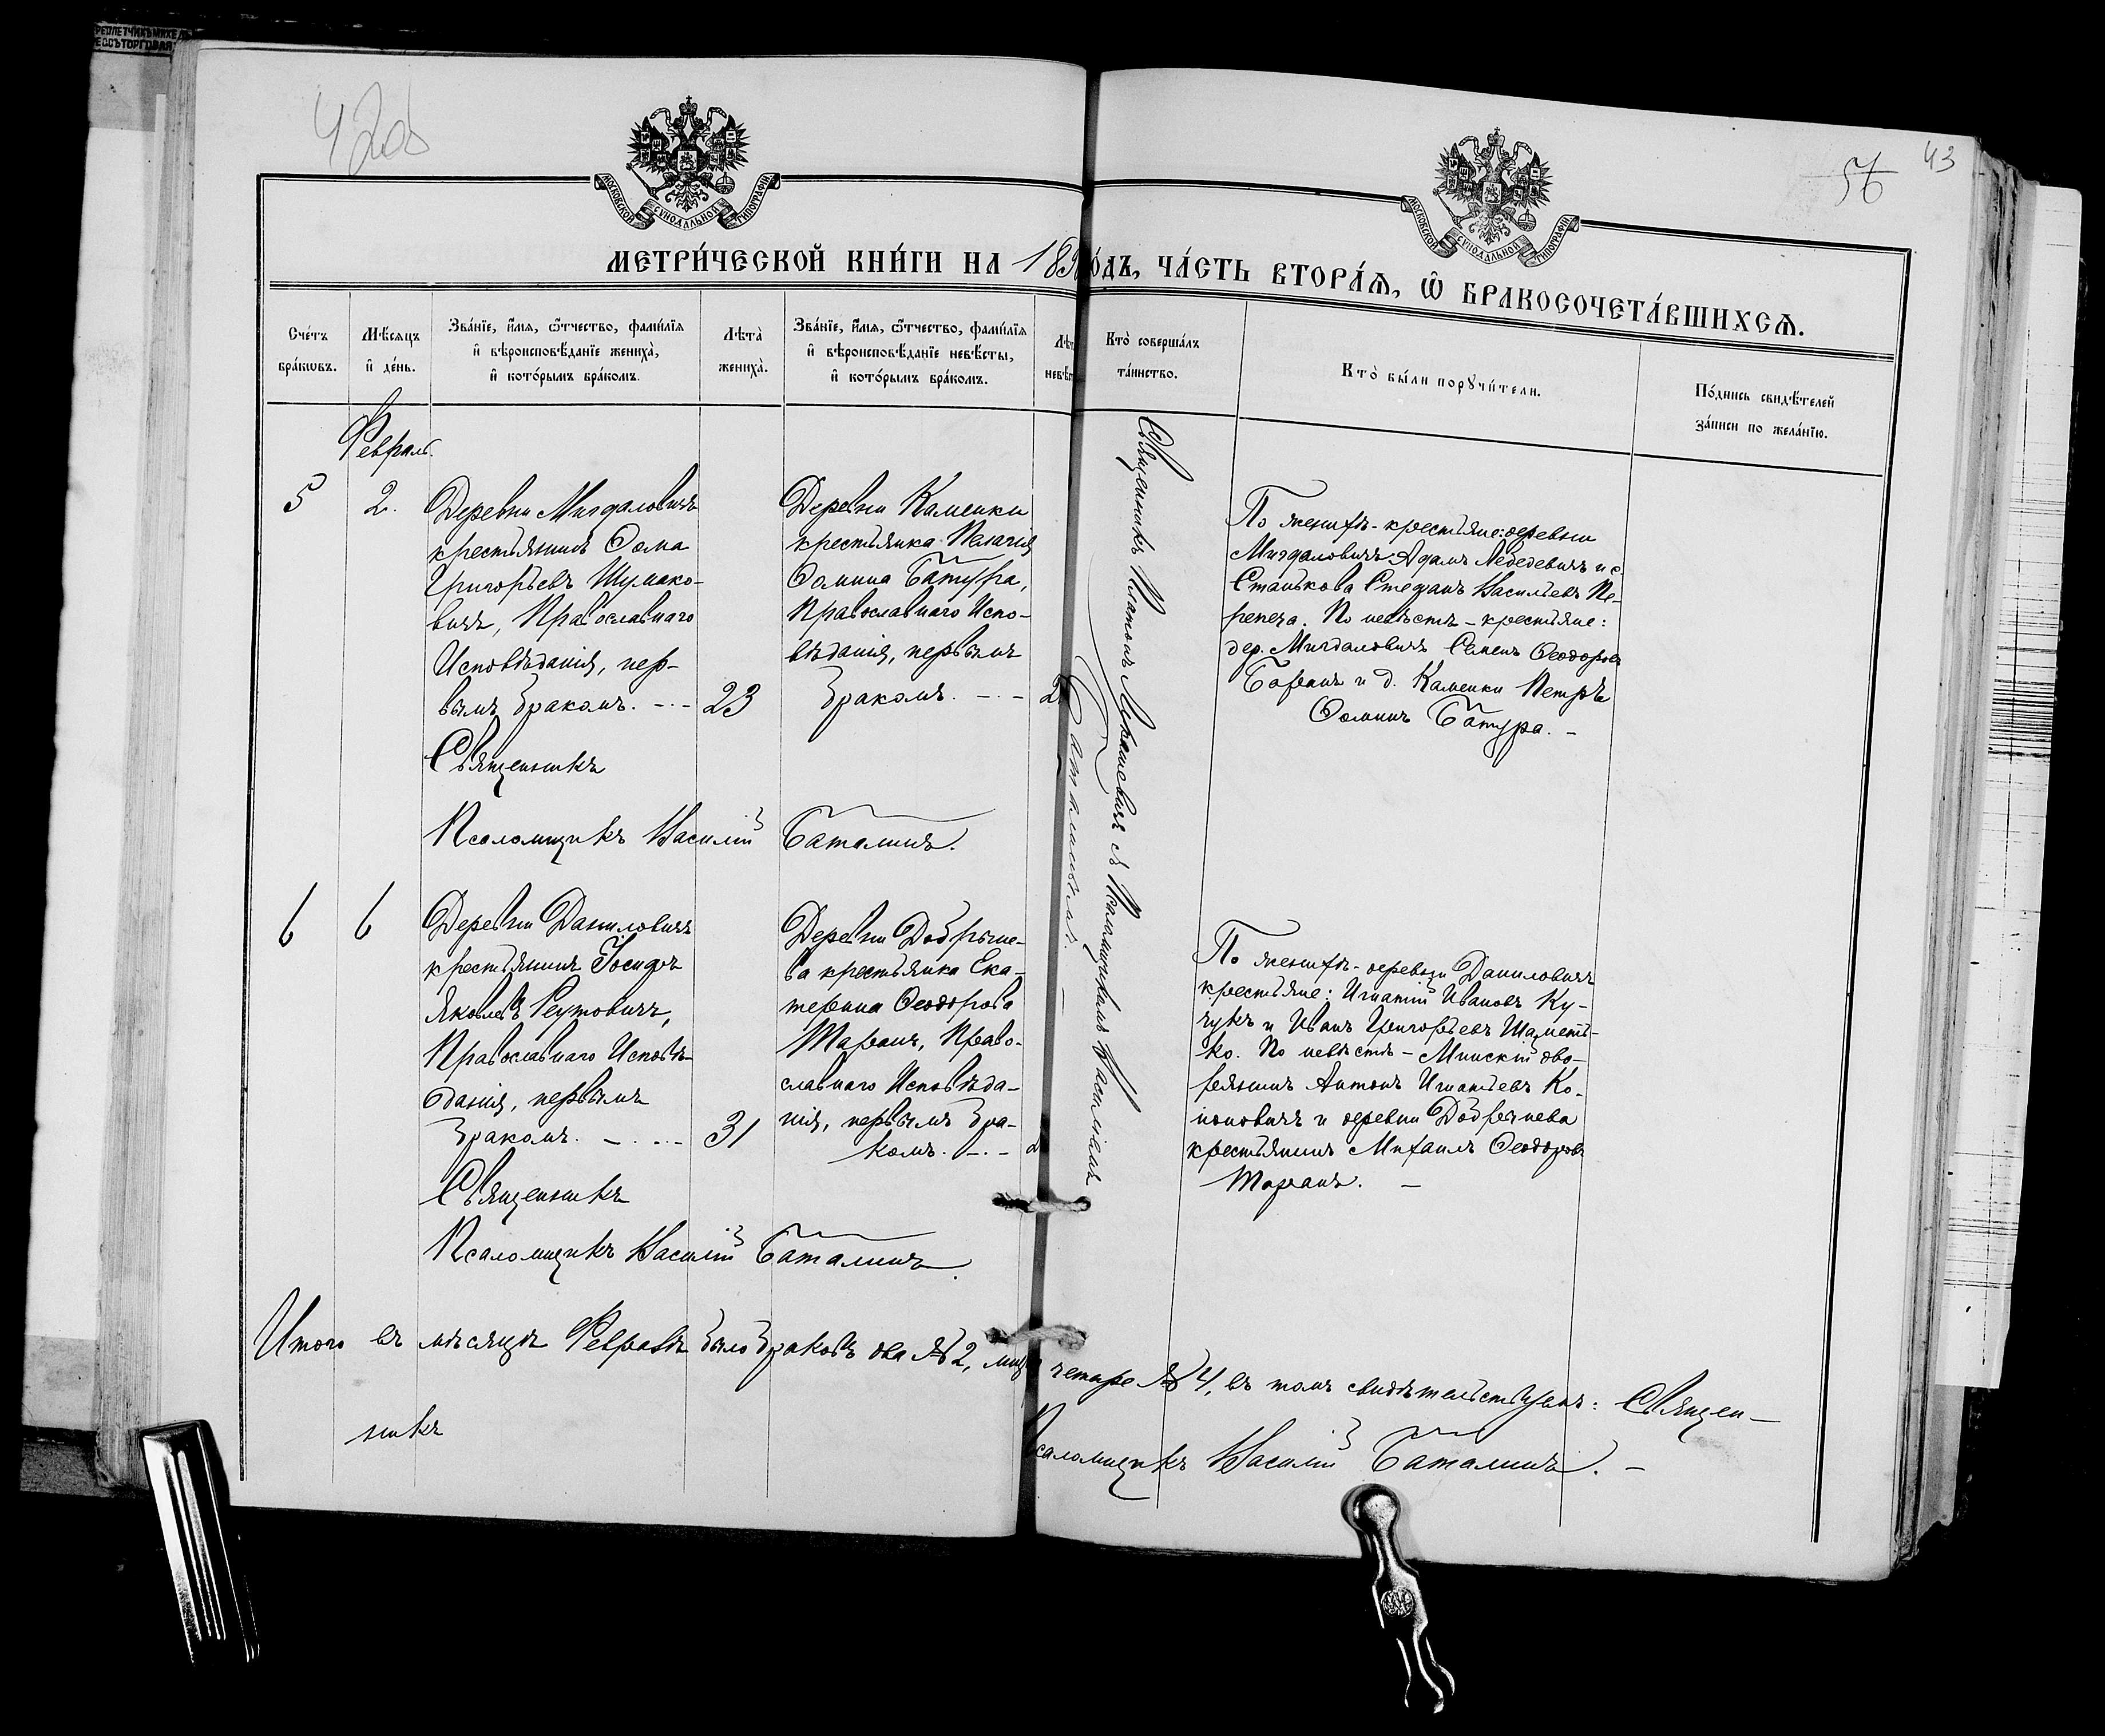 42об
56
43
МОСКОВСКОЙ СѴНОДАЛЬНОЙ ТИПОГРАФІИ
МОСКОВСКОЙ СѴНОДАЛЬНОЙ ТИПОГРАФІИ
МЕТРИ́ЧЕСКОЙ КНИ́ГИ НА 189 ГО́ДЪ, ЧА́СТЬ ВТОРА́Ѧ, Ѽ БРАКОСОЧЕТА́ВШИХСѦ.
Сче́тъ бра́кѡвъ.
Мѣ́сѧцъ и҆ де́нь.
Зва́нїе, и҆́мѧ, ѻ҆́тчество, фами́лїѧ
и҆ вѣроисповѣ́данїе жениха̀,
и҆ кото́рымъ бра́комъ.
Лѣта̀ жениха̀.
Зва́нїе, и҆́мѧ, ѻ҆́тчество, фами́лїѧ
и҆ вѣроисповѣ́данїе невѣ́сты,
и҆ кото́рымъ бра́комъ.
Кто̀ соверша́лъ
та́инство.
Кто̀ бы́ли порꙋчи́тели.
По́дпись свидѣ́телей
за́писи по жела́нїю.
Февраль.
5
2.
Деревни Мигдаловичъ
крестьянинъ Ѳома
Григорьевъ Шумако-
вичъ, Православнаго
Исповѣданія, пер-
вымъ бракомъ. -.-
23
Деревни Каменки
крестьянка Пелагія
Ѳомина Батура,
Православнаго Испо-
вѣданія, первымъ
бракомъ. -.-
2
Священникъ Платонъ съ Псаломщикомъ Василіемъ
Баталинымъ. -
По женихѣ - крестьяне: деревни
Мигдаловичъ Адамъ Лебедевичъ и с.
Станькова Стефанъ Васильевъ Пе-
репеча. По невѣстѣ - крестьяне:
дер. Мигдаловичъ Семенъ Ѳеодоровъ
Боранъ и д. Каменки Петръ
Ѳоминъ Батура. -
Священникъ
Псаломщикъ Василій Баталинъ.
6
6
Деревни Даниловичъ
крестьянинъ Іосифъ
Яковлевъ Реутовичъ,
Православнаго Исповѣ-
данія, первымъ
бракомъ. -.-.-
31
Деревни Добрыне-
ва крестьянка Ека-
терина Ѳеодорова
Таранъ, Право-
славнаго Исповѣда-
нія, первымъ бра-
комъ. -.-
2
По женихѣ - деревни Даниловичъ
крестьяне: Игнатій Ивановъ Ку-
чукъ и Иванъ Григорьевъ Шаметь-
ко. По невѣстѣ - Минскій дво-
рянинъ Антонъ Игнатьевъ Ко-
ноновичъ и деревни Добрынева
крестьянинъ Михаилъ Ѳеодоровъ
Таранъ. -
Священникъ
Псаломщикъ Василій Баталинъ.
Итого въ мѣсяцѣ Февралѣ было браковъ два № 2, лицъ четыре № 4, въ томъ свидѣтельствуемъ: Священ-
никъ
Псаломщикъ Василій Баталинъ. -